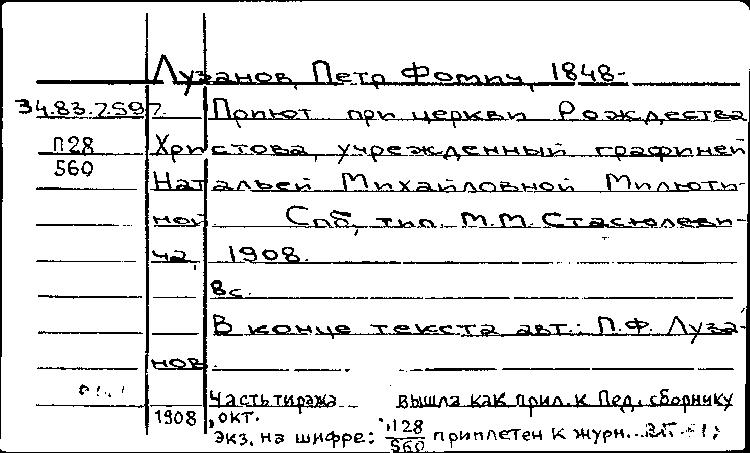 Лузанов, Петр Фомич, 1848-
34.83.7.597. Приют при церкви Рождества
П28 Христова, учрежденный графиней
560 Натальей Михайловной Милюти-
ной. Спб, тип. М.М. Стасюлеви-
ча, 1908.
8с.
В конце текста авт.: П.Ф. Луза-
нов.
Часть тиража вышла как прил. к Пед. сборнику
1908, окт.
Экз. на шифре: П28/560 приплетен к журн.